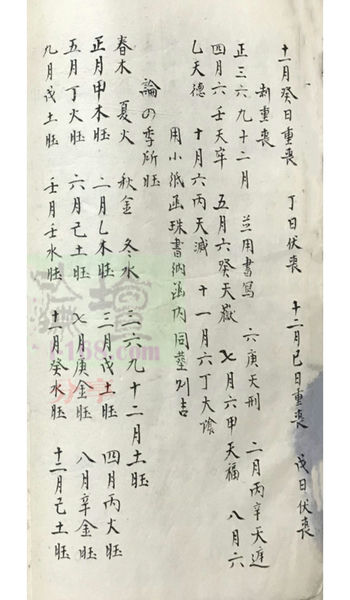 十一月癸日重喪　丁日伏喪　十二月巳日重喪　戊日伏喪
制重喪
正三六九十二月　並用書寫　六庚天刑　二月丙辛天遊
四月六壬天牢　五月六癸天嶽　七月六甲天福　八月六
乚天德　十月六丙天減　十一月六丁大陰
用小紙函珠書納函內同塟則吉
論の季所旺
春木　夏火　秋金　冬水　三六九十二月土旺
正月甲木旺　二月乚木旺　三月戊土旺　四月丙火旺
五月丁火旺　六月己土旺　七月庚金旺　八月辛金旺
九月戊土旺　壬月壬水旺　十一月癸水旺　十二月己土旺
論壇
9-168.com
分享